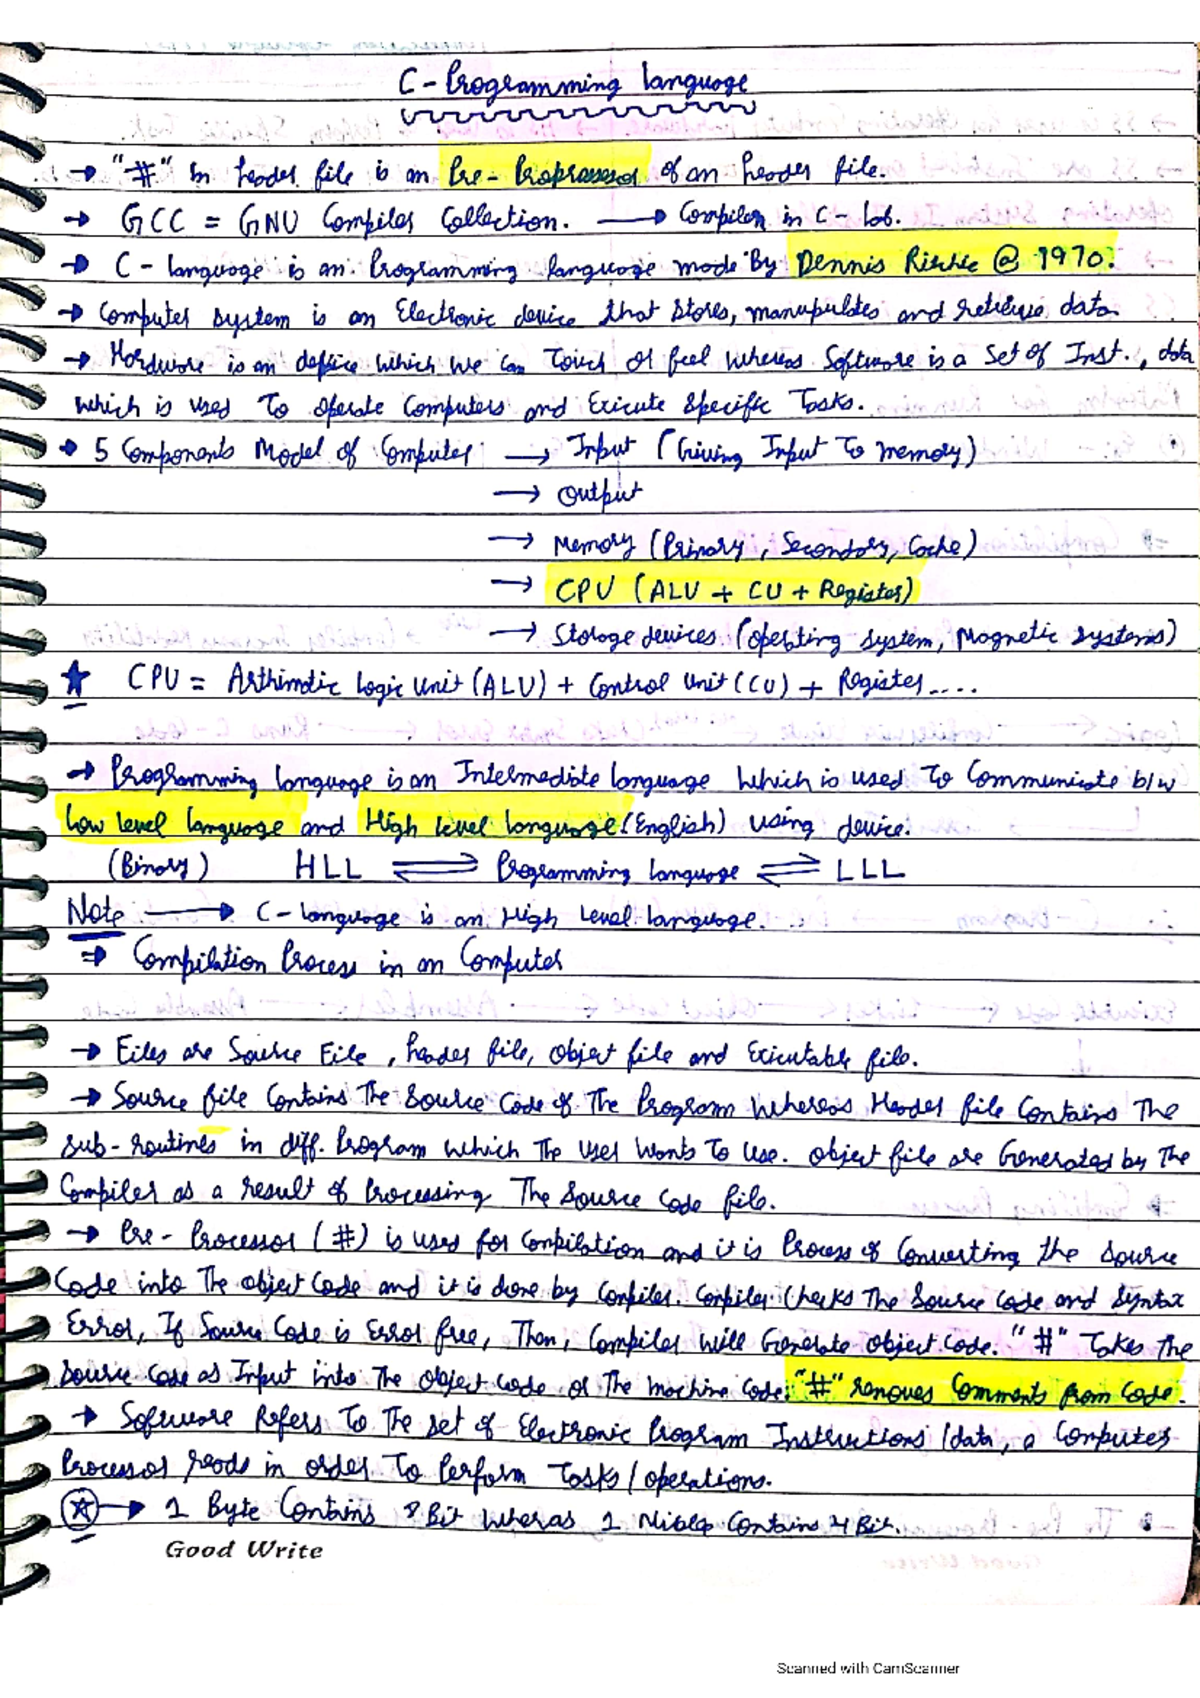 C - Programming language
→ "#" In header file is an Pre- Proprocessor of an header file.
→ GCC = GNU Compiler Collection. → Compiler in C - lab.
→ C - language is an Programming language made By Dennis Ritchie @ 1970.
→ Computer system is an Electronic device that stores, manupulates and retrieves data.
→ Hardware is an device which we can Touch or feel whereas Software is a Set of Inst., data
which is used To operate Computers and Exicute Specific Tasks.
→ 5 Components Model of Computer → Input (Giving Input To memory)
→ Output
→ Memory (Primary, Secondary, Cache)
→ CPU (ALU + CU + Register)
→ Storage devices (operating system, Magnetic Systems)
★ CPU = Arthimatic Logic Unit (ALU) + Control Unit (CU) + Register....
→ Programming language is an Intermediate language which is used To Communicate b/w
Low level language and High level language (English) using device.
(Binary) HLL ⇌ Programming language ⇌ LLL
Note → C - language is an High Level language.
⇒ Compilation Process in an Computer
→ Files are Source File, header file, object file and Exicutable file.
→ Source file Contains The Source Code of The Program whereas Header file Contains The
sub-routines in diff. Program which The user wants To use. Object file are Generated by The
Compiler as a result of Processing The Source Code file.
→ Pre - Processor (#) is used for Compilation and it is Process of Converting the Source
Code into The object Code and it is done by Compiler. Compiler Checks The Source Code and Syntax
Error, If Source Code is Error free, Then, Compiler will Generate object Code. "#" Takes the
Source Code as Input into The object Code or The machine Code. "#" removes Comments from Code.
→ Software Refers To The set of Electronic Program Instructions /data, a Computer
Processor reads in order To Perform Tasks / operations.
★ → 1 Byte Contains 8 Bit wheras 1 Nible Contains 4 Bit.
Good Write
Scanned with CamScanner